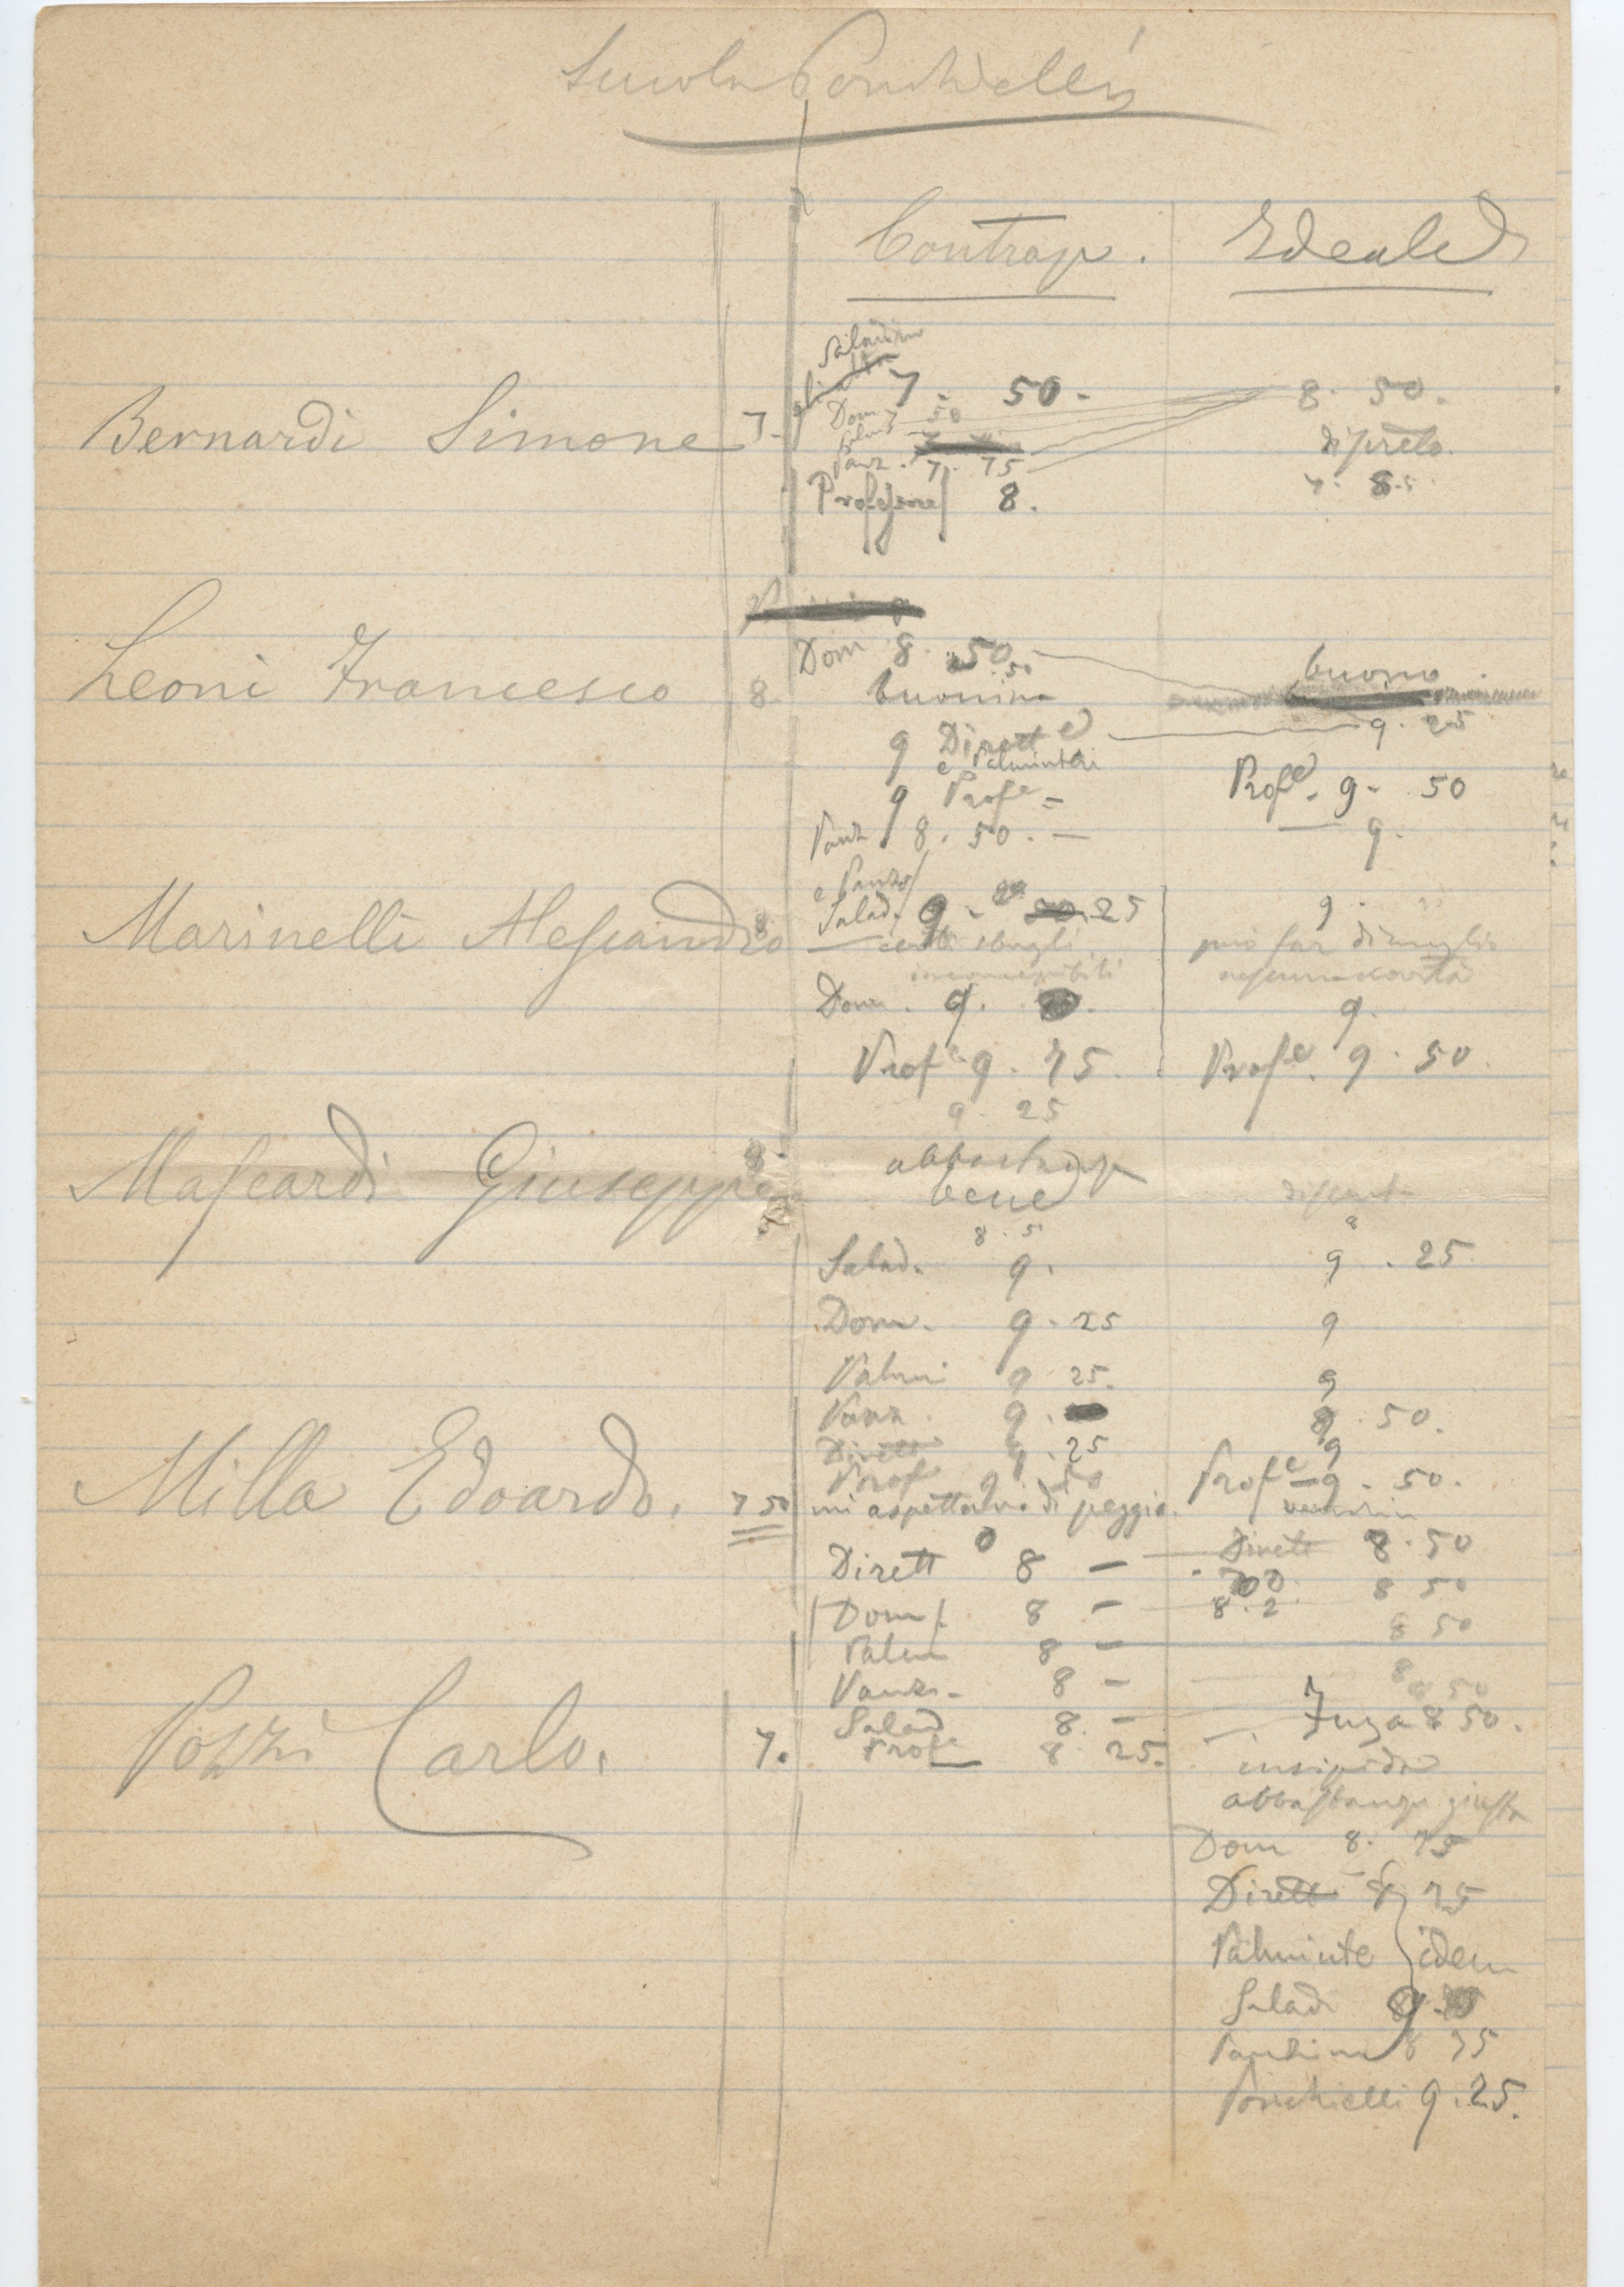 Scuola Ponchielli
Contrap. Ideale
Saladino
7. 50. 8. 50.
Dom 7 50
Bernardi Simone 7. Salad discreto.
Panz. 7. 75
Professore 8. 7. 8.5
Dom 8. 50
Leoni Francesco 8. buonino buono
9 Dirett e 9. 25
e Palminteri
9 Profe = Profe. 9. 50
Panz 8. 50. — 9.
e Panza
Salad. 9. 25 9.
Marinelli Alessandro 8 — certi sbagli può far di meglio
incompatibili nessuna novità
Dom. 9. 9.
Profe 9. 75. Profe. 9. 50.
9. 25
Mascardi Giuseppe 8. abbastanza
bene discreta
8. 5 8
Salad. 9. 9. 25
Dom. 9. 25 9
Palmi 9 25. 9
Panz. 9. 8. 50.
Dirett 9. 25 9
Prof 9 50 Profe — 9. 50.
Milla Edoardo. 7 50 mi aspettavo di peggio.
Dirett 8 — Dirett 8. 50
8 50
Dom. 8 — 8. 2
8 50
Palm 8 —
Panz. — 8 — 8
50
Salad 8. — Fuga 8 50.
Pozzi Carlo. 7. Profe 8 25.
insipida
abbastanza giusta
Dom 8. 75
Dirett 8 75
Palminte idem
Salad 9.
Panzini 8 75
Ponchielli 9. 25.